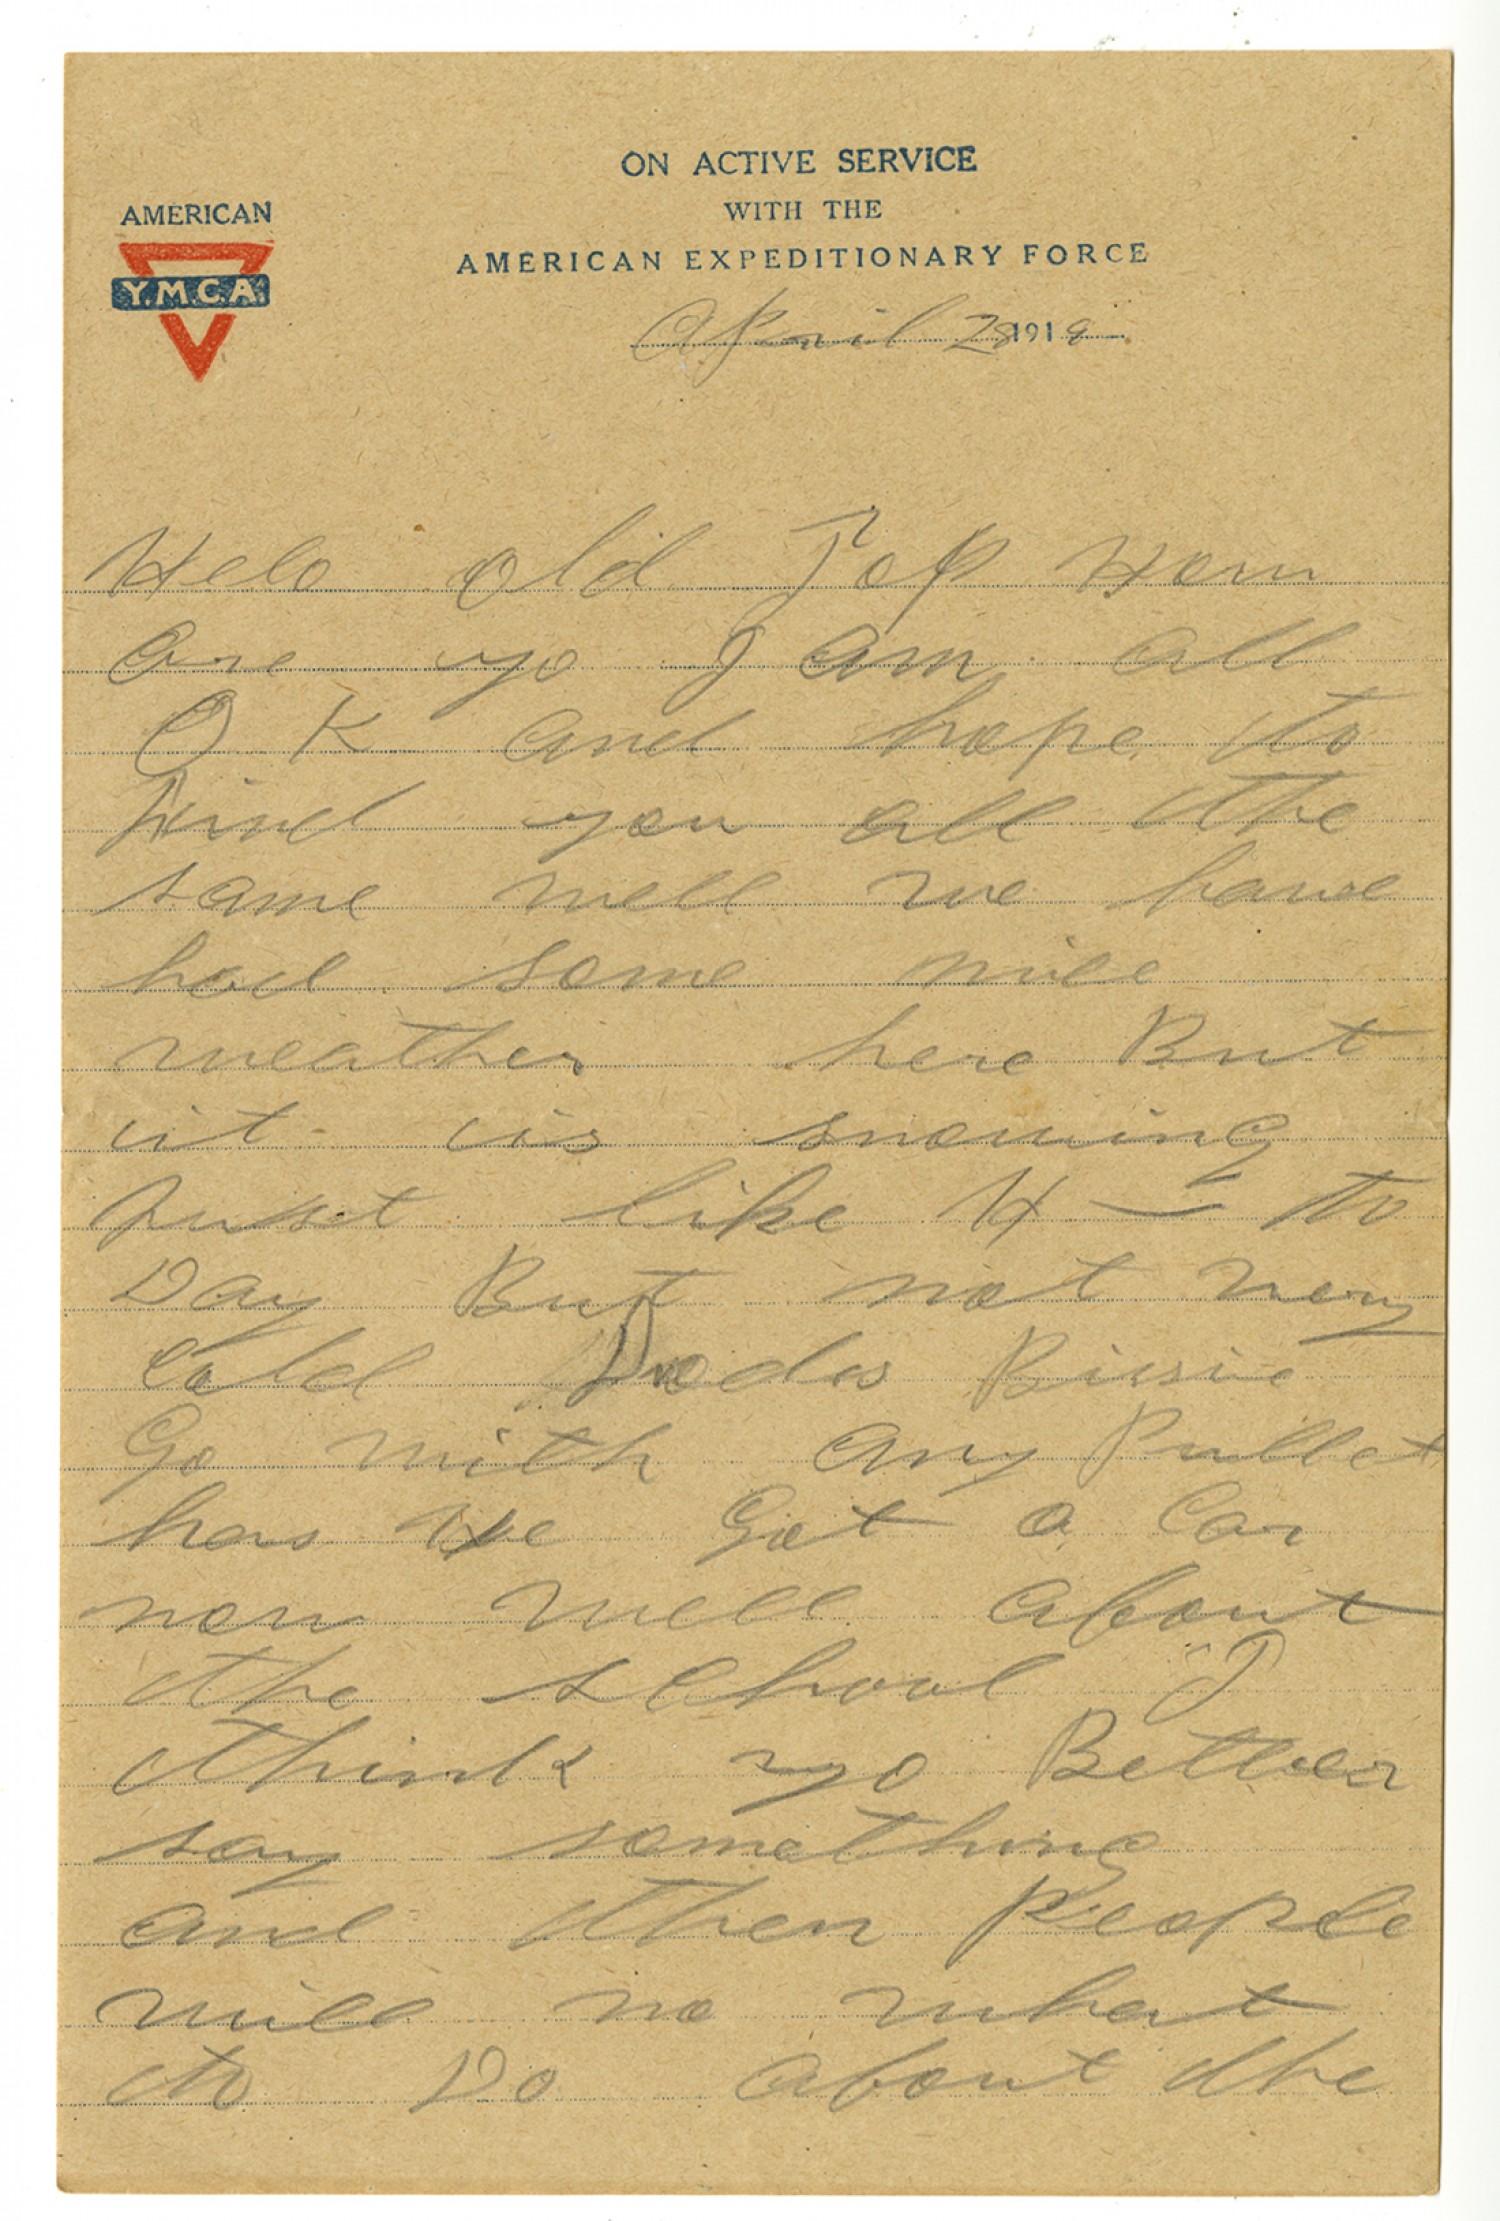 ON ACTIVE SERVICE
WITH THE
AMERICAN EXPEDITIONARY FORCE
AMERICAN
Y.M.C.A.
April 28 1919
Helo old Top How
are yo I am all
O K and hope to
find you all the
same well we have
had some nice
weather here But
it is snowing
just like H — to
Day But not very
Cold Dods Birsie
Go with any Pullet
has he Got a Car
now well about
the school I
think yo Better
say something
and then People
will no what
to Do about the